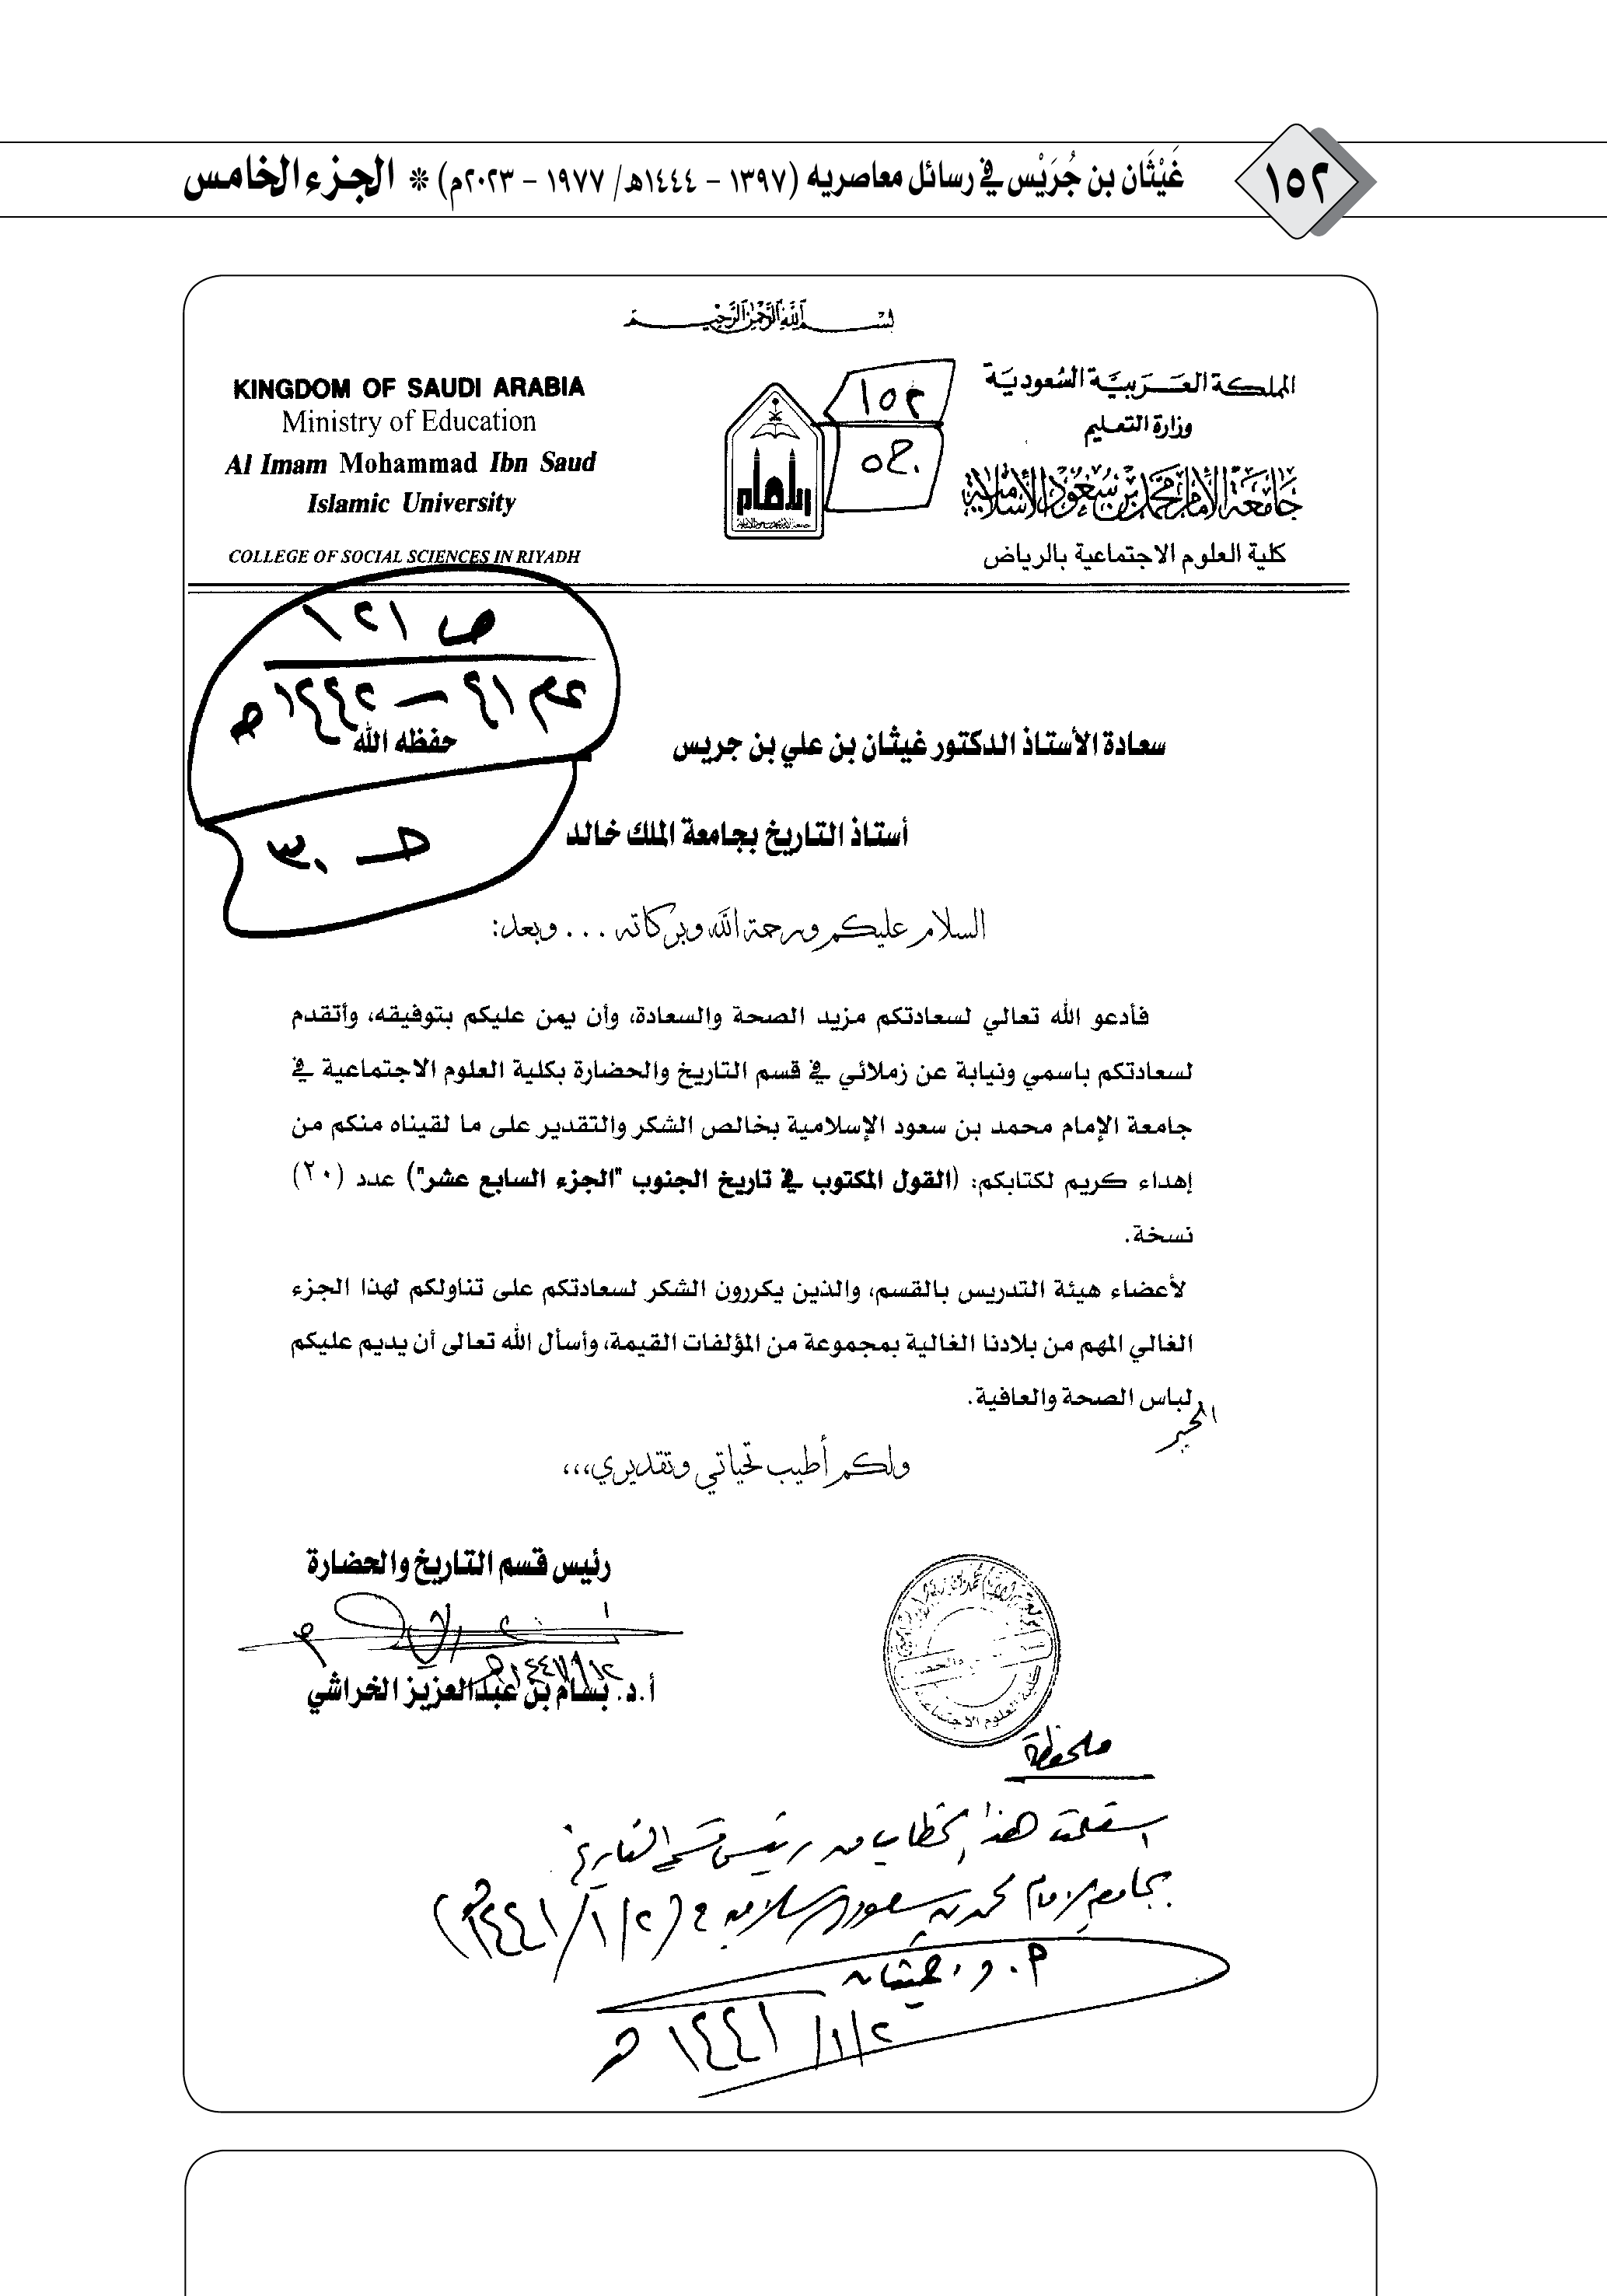 ١٥٢
غَيْثَان بن جُرَيْس في رسائل معاصريه (١٣٩٧ – ١٤٤٤هـ/ ١٩٧٧ – ٢٠٢٣م) * الجزء الخامس
بسم الله الرحمن الرحيم
المملكة العربية السعودية
وزارة التعليم
جامعة الإمام محمد بن سعود الإسلامية
كلية العلوم الاجتماعية بالرياض
١٥٢
KINGDOM OF SAUDI ARABIA
Ministry of Education
Al Imam Mohammad Ibn Saud
Islamic University
COLLEGE OF SOCIAL SCIENCES IN RIYADH
ص ١٢١
سعادة الأستاذ الدكتور غيثان بن علي بن جريس حفظه الله
أستاذ التاريخ بجامعة الملك خالد
السلام عليكم ورحمة الله وبركاته ... وبعد:
فأدعو الله تعالي لسعادتكم مزيد الصحة والسعادة، وأن يمن عليكم بتوفيقه، وأتقدم
لسعادتكم باسمي ونيابة عن زملائي في قسم التاريخ والحضارة بكلية العلوم الاجتماعية في
جامعة الإمام محمد بن سعود الإسلامية بخالص الشكر والتقدير على ما لقيناه منكم من
إهداء كريم لكتابكم: (القول المكتوب في تاريخ الجنوب "الجزء السابع عشر") عدد (٢٠)
نسخة.
لأعضاء هيئة التدريس بالقسم، والذين يكررون الشكر لسعادتكم على تناولكم لهذا الجزء
الغالي المهم من بلادنا الغالية بمجموعة من المؤلفات القيمة، وأسأل الله تعالى أن يديم عليكم
لباس الصحة والعافية.
ولكم أطيب تحياتي وتقديري،،،
رئيس قسم التاريخ والحضارة
أ.د. بسام بن عبدالعزيز الخراشي
ملحوظة
استلمت هذا الخطاب من رئيس قسم التاريخ
بجامعة الإمام محمد بن سعود الإسلامية في (٢/١/١٤٤١هـ)
غيثان
٢/١/١٤٤١هـ